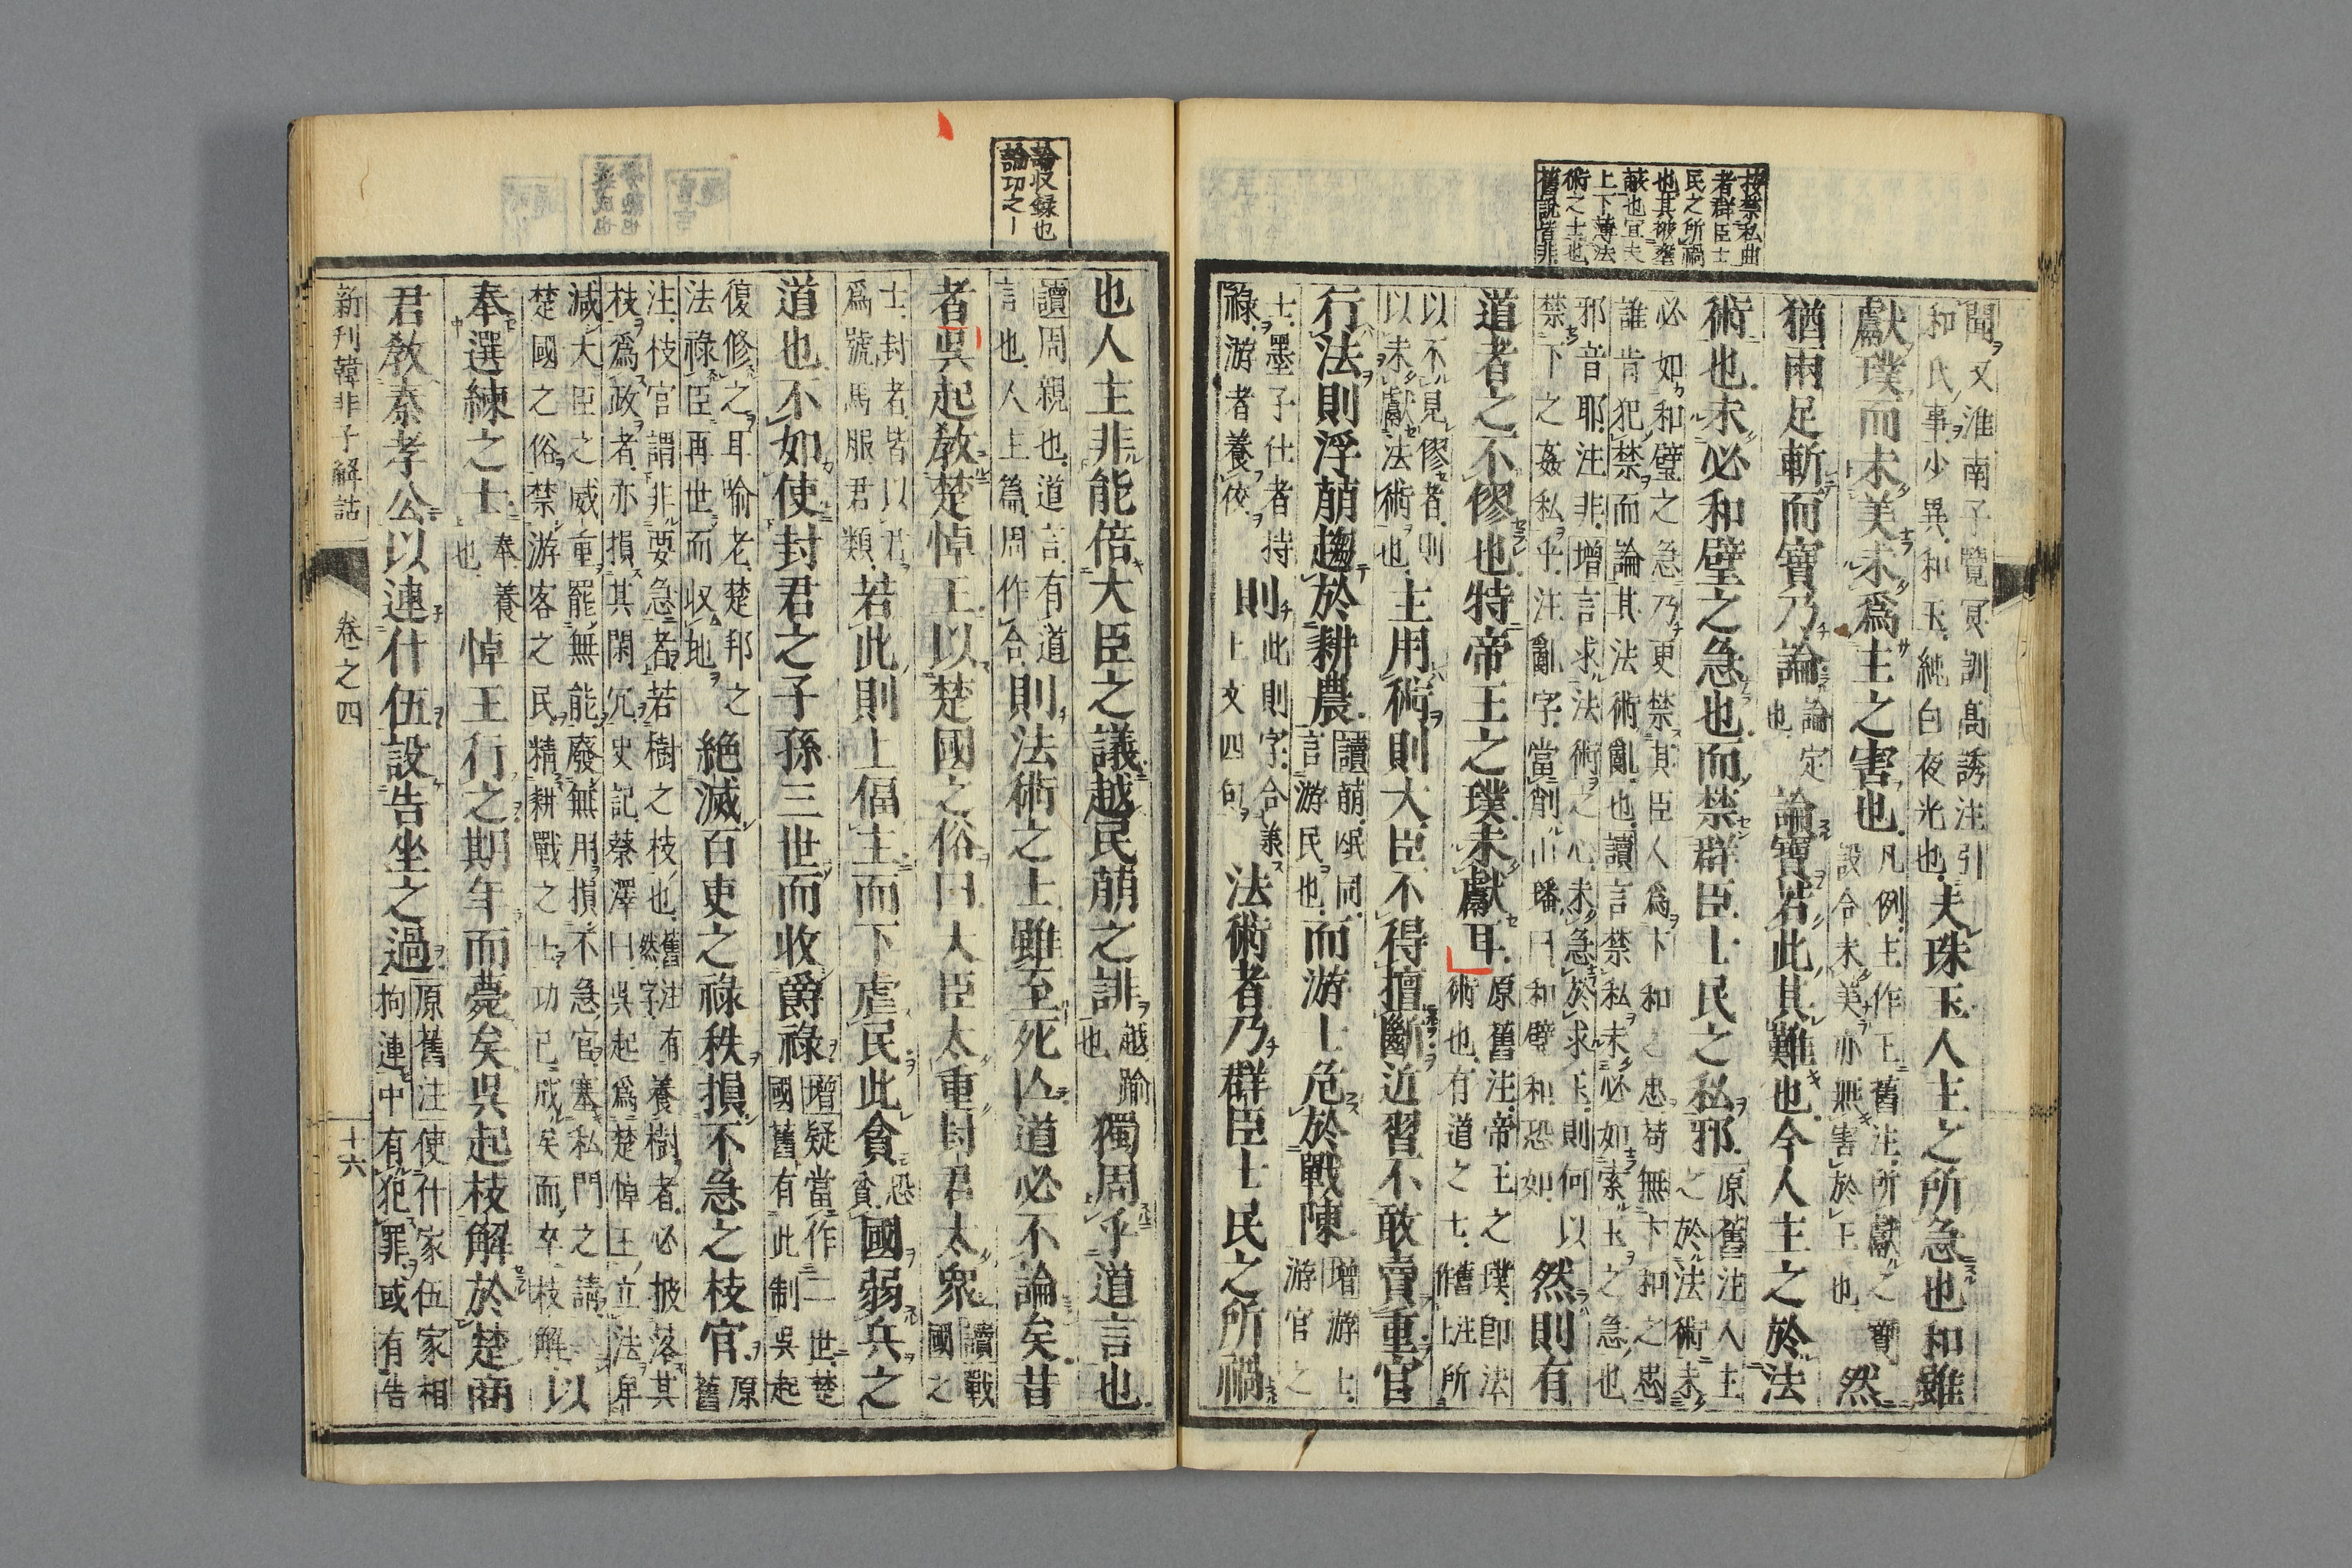 按禁私曲
者群臣士
民之所禍
也其被壅
蔽也宜夫
上下薄法
術之士也
舊說皆非
聞又淮南子覽冥訓高誘注引
和氏事少異和玉純白夜光也
夫珠玉人主之所急也和雖
獻璞而未美未爲主之害也
凡例主作王舊注所獻之寶
設令未美亦無害於王也
然
猶兩足斬而寶乃論
論定
也
論寶若此其難也今人主之於法
術也未必和璧之急也而禁群臣士民之私邪
原舊注人主
之於法術未
必如和璧之急乃更禁其臣人爲下和之忠苟無卞和之忠
誰肯犯禁而論其法術亂也讀言禁私未必如索玉之急也
邪音耶注非增言求法術之心未急於求玉則何以
禁下之姦私乎注亂字當削山璠曰和璧和恐如
然則有
道者之不僇也特帝王之璞未獻耳
原舊注帝王之璞即法
術也有道之士舊注上所
以不見僇者則
以未獻法術也
主用術則大臣不得擅斷近習不敢賣重官
行法則浮萠趨於耕農
讀萠氓同
言游民也
而游士危於戰陳
增游士
游官之
士墨子仕者持
祿游者養佼
則
此則字合兼
上文四句
法術者乃群臣士民之所禍
論收録也
論功之
也人主非能倍大臣之議越民萠之誹
越踰
也
獨周乎道言也
讀周親也道言有道
言也人主爲周作合
則法術之士雖至死亡道必不論矣昔
者吳起教楚悼王以楚國之俗曰大臣太重封君太衆
讀戰
國之
士封者皆以君
爲號馬服君類
若此則上偪主而下虐民此貪
恐
貧
國弱兵之
道也不如使封君之子孫三世而收爵祿
增疑當作二世楚
國舊有此制吳起
復修之耳喻老楚邦之
法祿臣再世而收地
絶滅百吏之祿秩損不急之枝官
原
舊
注枝官謂非要急者若樹之枝也舊注有養樹者必披落其
枝爲政者亦損其閑冗史記蔡澤曰吳起爲楚悼王立法卑
減大臣之威重罷無能廢無用損不急官塞私門之請
楚國之俗禁游客之民精耕戰之士功已成矣而卒枝解
以
奉選練之士
奉養
也
悼王行之期年而薨矣吳起枝解於楚商
君教秦孝公以連什伍設告坐之過
原舊注使什家伍家相
拘連中有犯罪或有告
新刊韓非子解詁
卷之四
十六